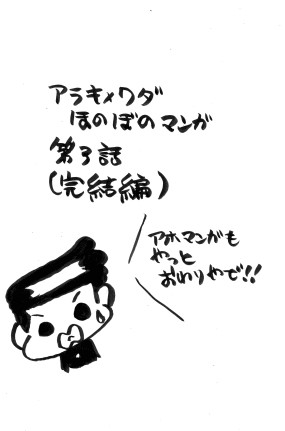 アラキ×ワダ
ほのぼのマンガ
第3話
(完結編)
アホマンガも
やっと
おわりやで!!